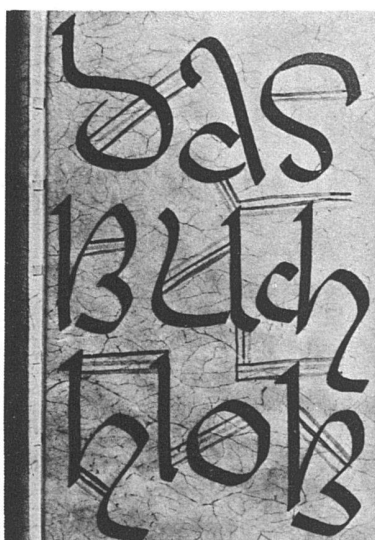 das
Buch
hIoB